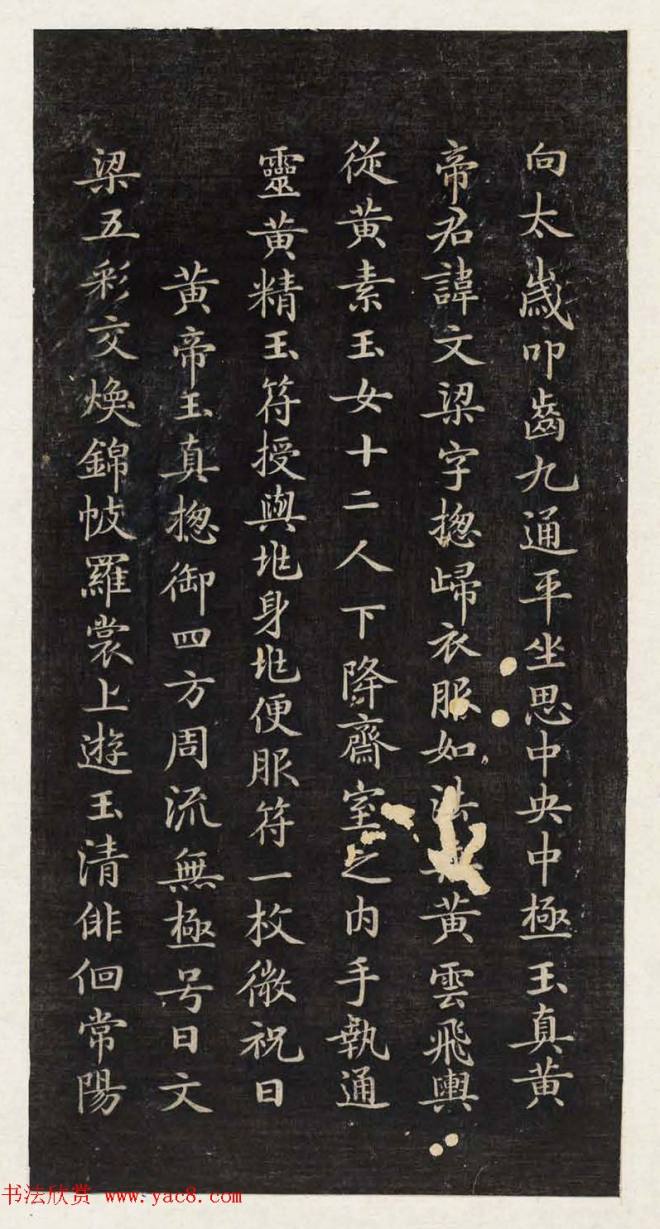 向太歲叩齒九通平坐思中央中極玉真黃
帝君諱文梁字揔歸衣服如法黃雲飛輿
從黃素玉女十二人下降齋室之內手執通
靈黃精玉符授與兆身兆便服符一枚微祝曰
黃帝玉真揔御四方周流無極号曰文
梁五彩交煥錦帔羅裳上遊玉清俳佪常陽
书法欣赏 www.yac8.com